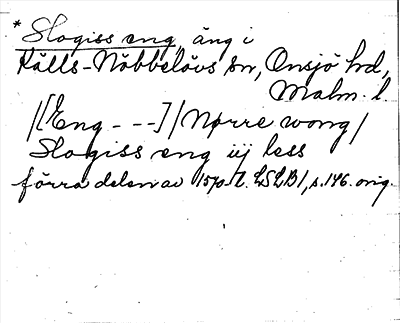 * Slogiss eng, äng i
Källs-Nöbbelövs sn, Onsjö hd,
Malm. l.
/[Eng - - -] / Nørre wong /
Slogiss eng iij less
förra delen av 1570-t. LSLB1, s. 146. orig.